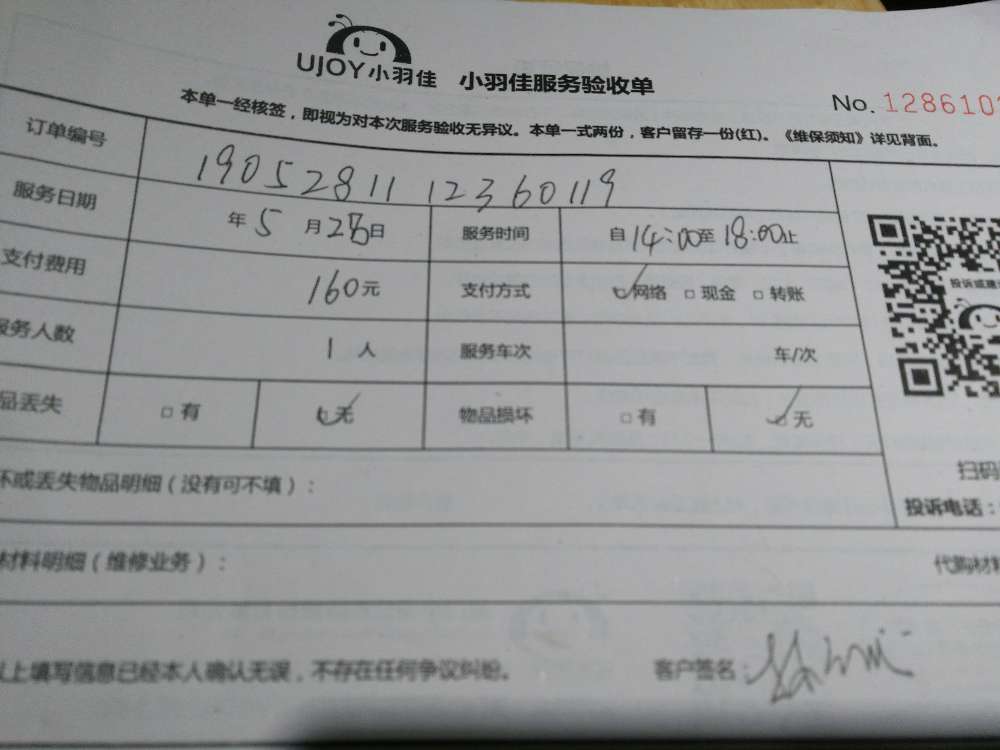 UJOY小羽佳 小羽佳服务验收单
No. 128610
本单一经核签，即视为对本次服务验收无异议。本单一式两份，客户留存一份(红)。《维保须知》详见背面。
订单编号 19052811 12360119
服务日期 年 5 月 28 日 服务时间 自 14:00 至 18:00 止
支付费用 160 元 支付方式 网络 □ 现金 □ 转账
服务人数 1 人 服务车次 车/次
品丢失 □ 有 无 物品损坏 □ 有 无
投诉或建
坏或丢失物品明细（没有可不填）：
扫码
投诉电话：
材料明细（维修业务）： 代购材料
以上填写信息已经本人确认无误，不存在任何争议纠纷。 客户签名：